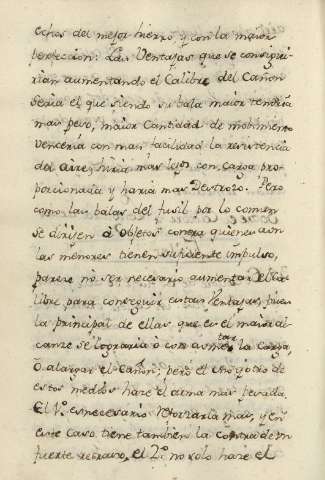 echos del mejor hierro y con la maior
perfeccion: Las Ventajas que se consigui-
rian aumentando el Calibre del Cañon
Seria el que siendo su bala maior tendria
mas peso, maior Cantidad de mobimiento
venceria con mas facilidad la resistencia
del aire, hiria mas lejos con carga pro-
porcionada y haria mas Destrozo. Pero
como las balas del fusil por lo comun
se dirijen á objetos contra quienes aun
las menores tienen suficiente impulso,
parese no ser necesario aumentar el Ca-
libre para conseguir estas Ventajas, pues
la principal de ellas que es el maior al-
canze se lograria ó con aumentar la Carga,
ó alargar el Cañon; pero el uno y otro de
estos medios haze el arma mas pesada
El 1º es necesario reforzarla mas, y en
este caso tiene tambien la contra de un
fuerte retraso, el 2º no solo haze el